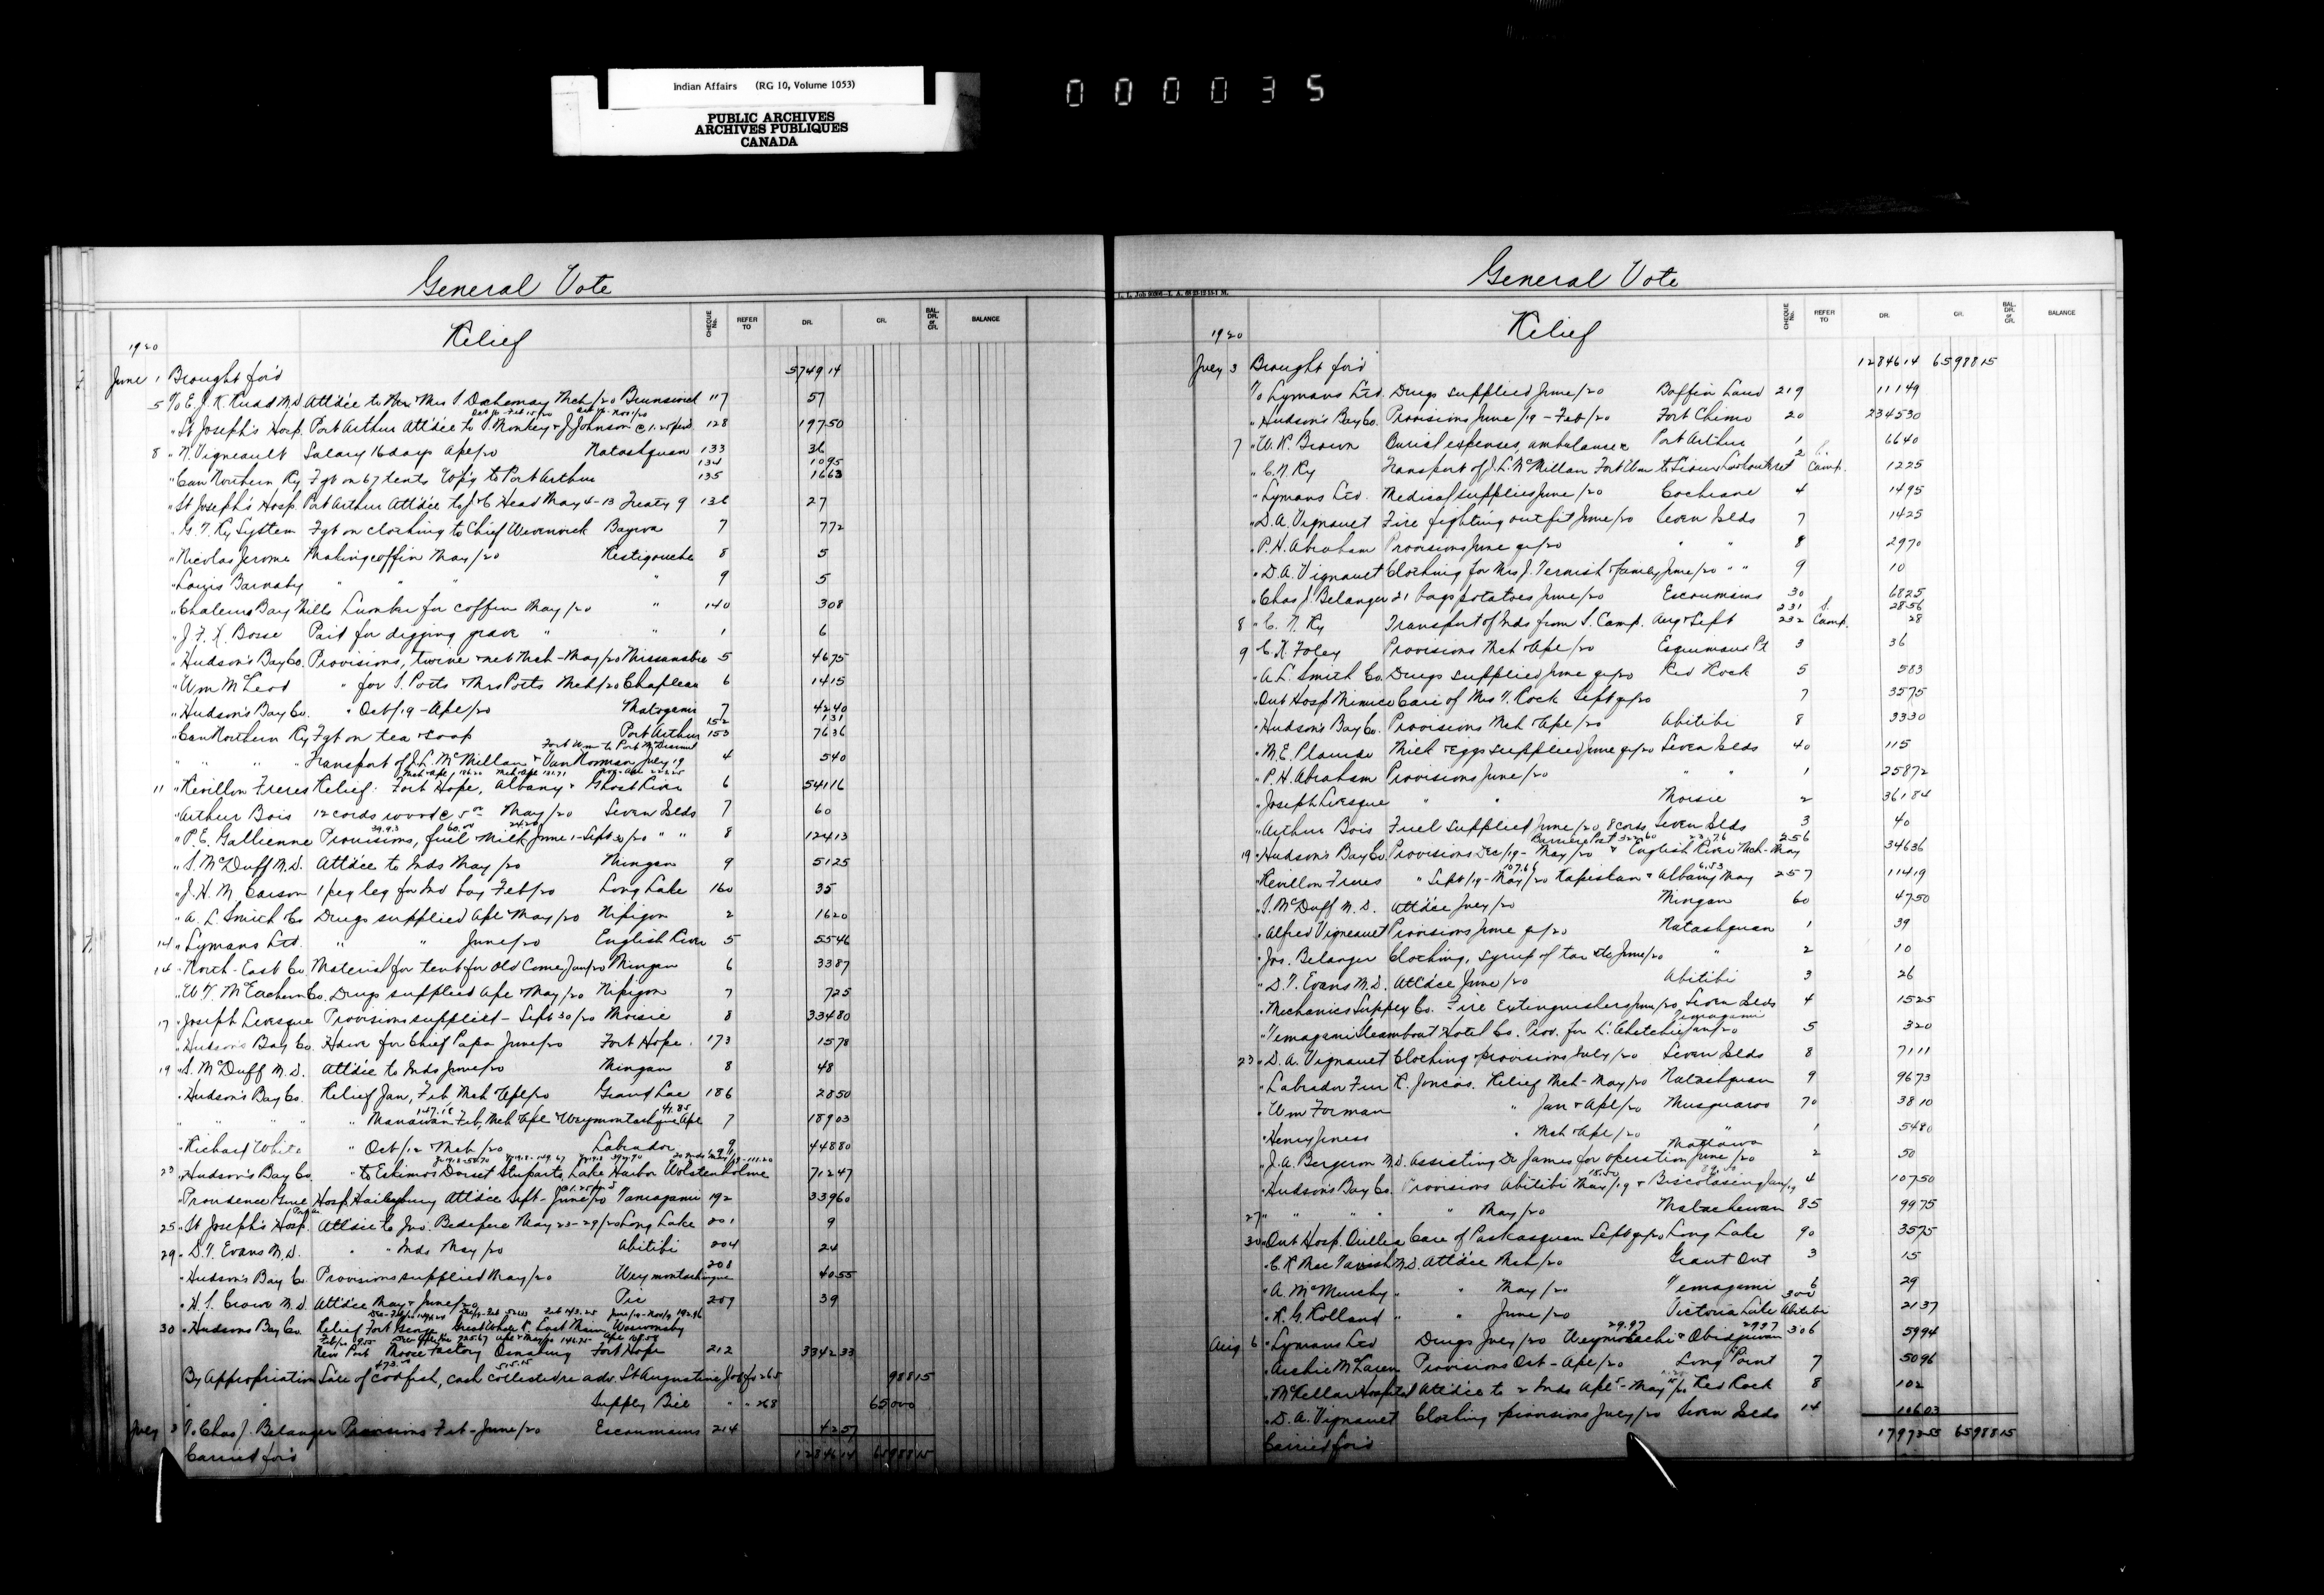 Indian Affairs (RG 10, Volume 1053)
PUBLIC ARCHIVES
ARCHIVES PUBLIQUES
CANADA
000035
General Vote
CHEQUE No. REFER TO DR. CR. BAL. DR. or CR. BALANCE
Relief
1920
June 1 Brought for'd 5749 14
5 To E. J. K. M.D. Att'd'ce to Mrs Mch/20 Brunswick 117 57
" St Joseph's Hosp. Port Arthur Att'd'ce to P. Monkey & J. Johnson @ 1.25 128 197 50
8 " N. Vigneault Salary 16 days Apl/20 Natashquan 133 36
134 10 95
" Can Northern Ry Fgt on 67 tents to Port Arthur 135 16 63
" St Joseph's Hosp. Port Arthur Att'd'ce to J. C. Head May 4-13 Treaty 9 136 27
" G. T. Ry System Fgt on clothing to Chief 7 7 72
" Nicolas Jerome Making coffin May/20 Restigouche 8 5
" Louis Barnaby " " " " 9 5
" Chaleurs Bay Mills Lumber for coffin May/20 " 140 3 08
" J. F. X. Bosse Paid for digging grave " " 1 6
" Hudson's Bay Co. Provisions, twine & net Mch-May/20 Missanabie 5 46 75
" Wm McLeod " for S. Potts & Mrs Potts Mch/20 Chapleau 6 14 15
" Hudson's Bay Co. " Oct/19-Apl/20 Matagami 7 42 40
152 1 31
" Can Northern Ry Fgt on tea & soap Port Arthur 153 76 36
Fort Wm to Port McDiarmid
" " " " Transport of J. L. McMillan & Van Norman July 19 4 5 40
11 " Revillon Freres Relief: Fort Hope, Albany & Ghost River 6 541 16
" Arthur Bois 12 cords wood @ 5.00 May/20 Seven Islds 7 60
39.93 60.00 24.20
" P. E. Gallienne Provisions, fuel & milk June 1-Sept 30/20 " " 8 124 13
" S. McDuff M.D. Att'd'ce to Inds May/20 Mingan 9 51 25
" J. H. M. Carson 1 peg leg for Ind boy Feb/20 Long Lake 160 35
" A. L. Smith Co Drugs supplied Apl & May/20 Nipigon 2 16 20
14 " Lymans Ltd. " " June/20 English River 5 55 46
14 " North-East Co. Material for tent for Old Come Jan/20 Mingan 6 33 87
" W. T. McEachern Co. Drugs supplied Apl & May/20 Nipigon 7 7 25
17 " Joseph Levesque Provisions supplied - Sept 30/20 Moisie 8 334 80
" Hudson's Bay Co. H'dwe for Chief Papa June/20 Fort Hope 173 15 78
19 " S. McDuff M.D. Att'd'ce to Inds June/20 Mingan 8 48
" Hudson's Bay Co. Relief Jan, Feb, Mch & Apl/20 Grand Lac 186 28 50
147.18 41.85
" " " " " Manawan Feb, Mch & Apl & Weymontachique Apl 7 189 03
" Richard White " Oct/12 & Mch/20 Labrador 9 448 80
23 " Hudson's Bay Co. " to Eskimos Dorset, Stuparts, Lake Harbor Wolstenholme 712 47
" Providence Gnl Hosp Haileybury Att'd'ce Sept-June/20 Temagami 192 339 60
25 " St Joseph's Hosp. Att'd'ce to Jno. Bedefere May 23-29/20 Long Lake 201 9
29 " D. T. Evans M.D. " " Inds May/20 Abitibi 204 24
" Hudson's Bay Co Provisions supplied May/20 Weymontachingue 208 40 55
" H. S. Crowe M.D. Att'd'ce May & June/20 Pic 209 39
30 " Hudsons Bay Co. Relief Fort George, Great Whale R. East Main
New Post Moose Factory Osnaburg Fort Hope 212 3342 33
473.00 515.15
By Appropriation Sale of codfish, cash collected re adv. St Augustine 265 988 15
" Supply Bill " " 268 65 000
July 3 To Chas J. Belanger Provisions Feb-June/20 Escoumains 214 42 57
Carried for'd 12846 14 65988 15
General Vote
CHEQUE No. REFER TO DR. CR. BAL. DR. or CR. BALANCE
Relief
1920
July 3 Brought for'd 12846 14 65988 15
To Lymans Ltd. Drugs supplied June/20 Baffin Land 219 111 49
" Hudson's Bay Co. Provisions June/19-Feb/20 Fort Chimo 20 2345 30
7 " W. R. Brown Burial expenses, ambulance Port Arthur 1 66 40
" C. N. Ry Transport of J. L. McMillan Fort Wm to Sioux Lookout 2 Camp. 12 25
" Lymans Ltd. Medical supplies June/20 Cochrane 4 14 95
" D. A. Vignault Fire fighting outfit June/20 Seven Islds 7 14 25
" P. H. Abraham Provisions June qr/20 " " 8 29 70
" D. A. Vignault Clothing for Mrs J. Vernish & family June/20 " " 9 10
" Chas J. Belanger 21 bags potatoes June/20 Escoumains 30 68 25
231 S. 28 56
8 " C. N. Ry Transport of Inds from S. Camp. Aug & Sept 232 Camp. 28
9 " C. K. Foley Provisions Mch & Apl/20 Esquimaux Pt 3 36
" A. L. Smith Co. Drugs supplied June qr/20 Red Rock 5 5 83
" Ont Hosp Mimico Care of Mrs T. Rock Sept qr/20 7 35 75
" Hudson's Bay Co. Provisions Mch & Apl/20 Abitibi 8 33 30
" M. E. Plamise Milk & eggs supplied June qr/20 Seven Islds 40 1 15
" P. H. Abraham Provisions June/20 " " 1 258 72
" Joseph Levesque " " Moisie 2 361 84
" Arthur Bois Fuel supplied June/20 8 cords Seven Islds 3 40
Barriere Post 322.60 23.76
19 " Hudson's Bay Co. Provisions Dec/19-May/20 & English River Mch-May 256 346 36
107.66 6.53
" Revillon Freres " Sept/19-May/20 Kapiskau & Albany May 257 114 19
" S. McDuff M.D. Att'd'ce July/20 Mingan 60 47 50
" Alfred Vigneault Provisions June qr/20 Natashquan 1 39
" Jos. Belanger Clothing, syrup of tar etc June/20 " 2 10
" D. T. Evans M.D. Att'd'ce June/20 Abitibi 3 26
" Mechanics Supply Co. Fire Extinguishers June/20 Seven Islds 4 15 25
Temagami
" Temagami Steamboat & Hotel Co. Prov. for Jan/20 5 3 20
23 " D. A. Vignault Clothing & provisions July/20 Seven Islds 8 71 11
" Labrador Fur R. Joncas. Relief Mch-May/20 Natashquan 9 96 73
" Wm Forman " Jan & Apl/20 Musquaro 70 38 10
" Henry Jness " Mch & Apl/20 " 1 54 80
Mattawa
" J. A. Bergeron M.D. Assisting Dr James for operation June/20 2 50
" Hudson's Bay Co. Provisions Abitibi May/19 & Biscotasing 4 107 50
27 " " " " " May/20 Matachewan 85 99 75
30 " Ont Hosp. Orillia Care of Paskasquan Sept qr/20 Long Lake 90 35 75
" C. K. MacTavish M.D. Att'd'ce Mch/20 Grant Ont 3 15
" A. McMurchy " " May/20 Temagami 6 29
" R. G. Rolland " " June/20 Victoria Lake Abitibi 300 21 37
29.97 29.97
Aug 6 " Lymans Ltd Drugs July/20 Weymontachi & Obidjuwan 306 59 94
" Archie McLaren Provisions Oct-Apl/20 Long Point 7 50 96
" McKellar Hospital Att'd'ce to 2 Inds Apl-May/20 Red Rock 8 102
" D. A. Vignault Clothing & provisions July/20 Seven Islds 14 106 03
Carried for'd 17973 53 65988 15